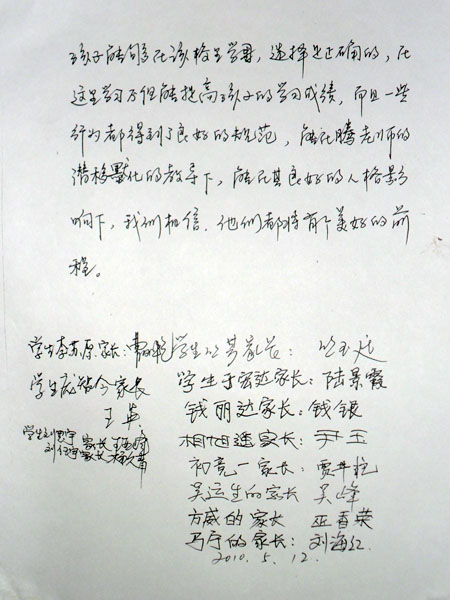 孩子能够在该校上学, 选择是正确的, 在
这里学习不但能提高孩子的学习成绩, 而且一些
行为都得到了良好的规范, 能在腾老师的
潜移默化的教导下, 能在其良好的人格影
响下, 我们相信. 他们都将有个美好的前
程。
学生李苏原家长: 学生 家长:
学生 家长 学生于宏达家长: 陆景霞
王 钱丽达家长: 钱银
学生刘 宇 家长 家长: 尹玉
刘 宇家长 初竞一家长: 贾井
吴运生的家长 吴峰
方威的家长 巫春荣
马宁的家长: 刘海红
2010. 5. 12.